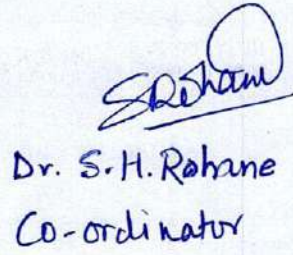 SRohane
Dr. S.H. Rohane
Co-ordinator